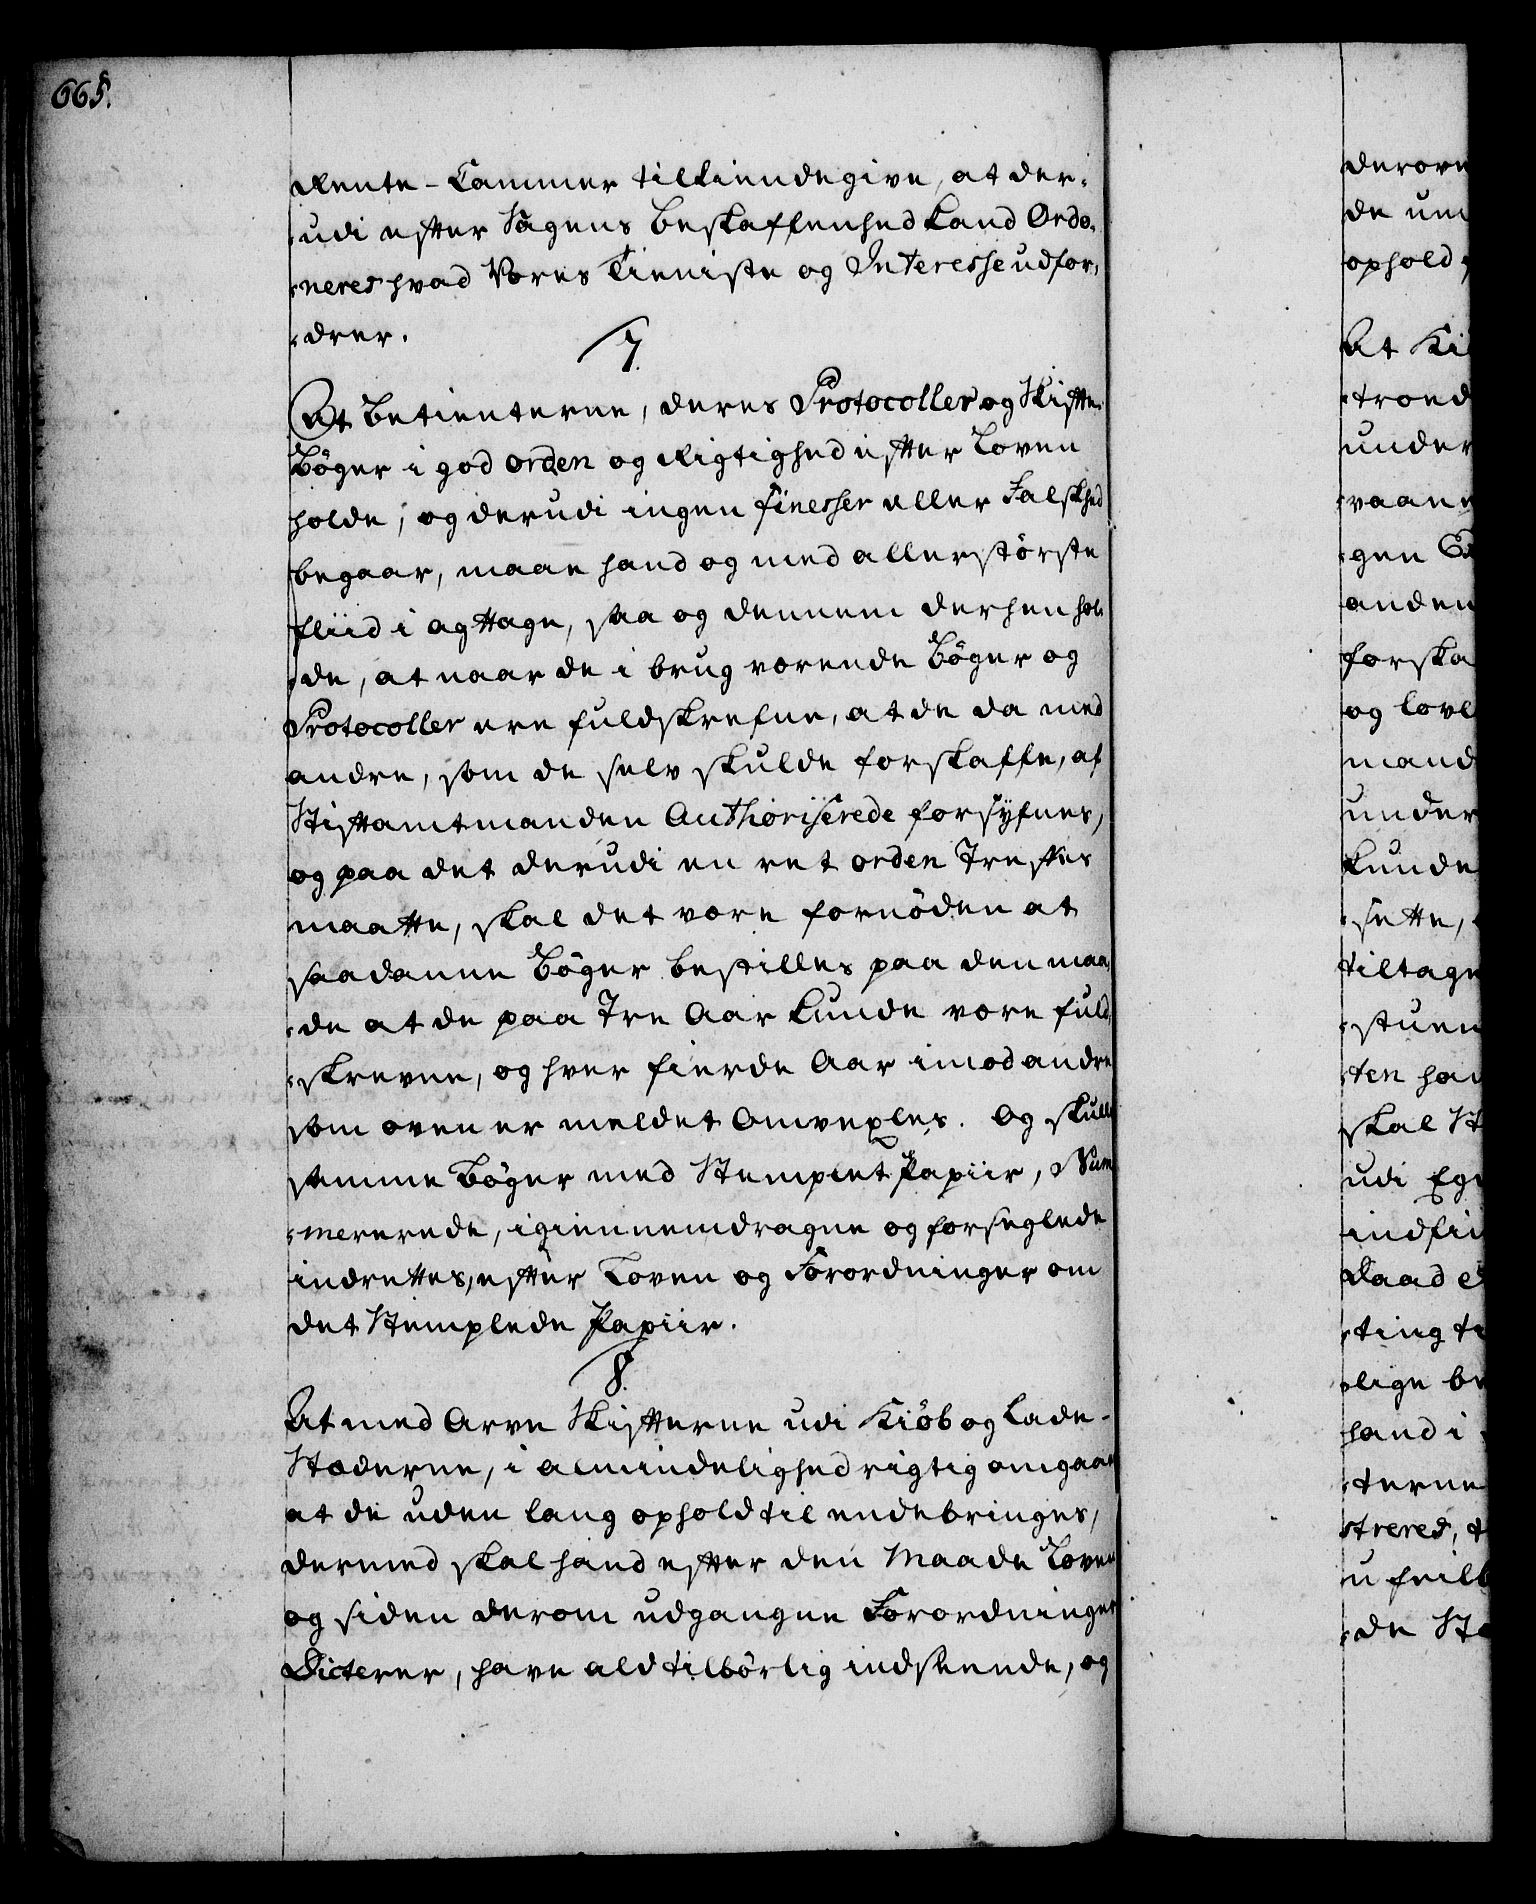 665.
Rente-Cammer tilkiendegive, at der-
-udi efter Sagens beskaffenhed kand Ordo-
-neres hvad Vores Tieniste og Interesse udfor-
-drer.
7.
At Betienterne, deres Protocoller og Skifte-
Bøger i god orden og Rigtighed efter Loven
holde, og derudi ingen finesser eller Falskhed
begaar, maae hand og med allerstørste
fliid i agttage, saa og dennem derhen hol-
-de, at naar de i brug værende Bøger og
Protocoller ere fuldskrefne, at de da med
andre, som de selv skulde forskaffe, af
Stiftamtmanden Authoriserede forsyfnes,
og paa det derudi en ret orden Treffes
maatte, skal det være fornøden at
saadanne Bøger bestilles paa den maa-
-de at de paa Tre Aar kunde være fuld-
-skrevne, og hver fierde Aar imod andre
som oven er meldet Omvexles. Og skulle
samme Bøger med Stemplet Papiir, Num-
-mererede, igiennemdragne og forseglede
indrettes, efter Loven og Forordninger om
det Stemplede Papiir.
8.
At med Arve Skifterne udi Kiøb og Lade-
Stæderne, i almindelighed rigtig omgaaes
at de uden lang ophold til ende bringes,
dermed skal hand efter den Maade Loven
og siden derom udgangne Forordninger
Dicterer, have ald tilbørlig indseende, og
derove
de un
ophold
At Ki
-troed
under
-vaane
-gen
anden
forska
og lovl
mand
under
kunde
-sette,
tiltage
-stuen
-ten han
skal St
udi Eg
indfin
Raad
-ting t
-lige br
hand i
-terne
streres,
u feilb
-de Sta